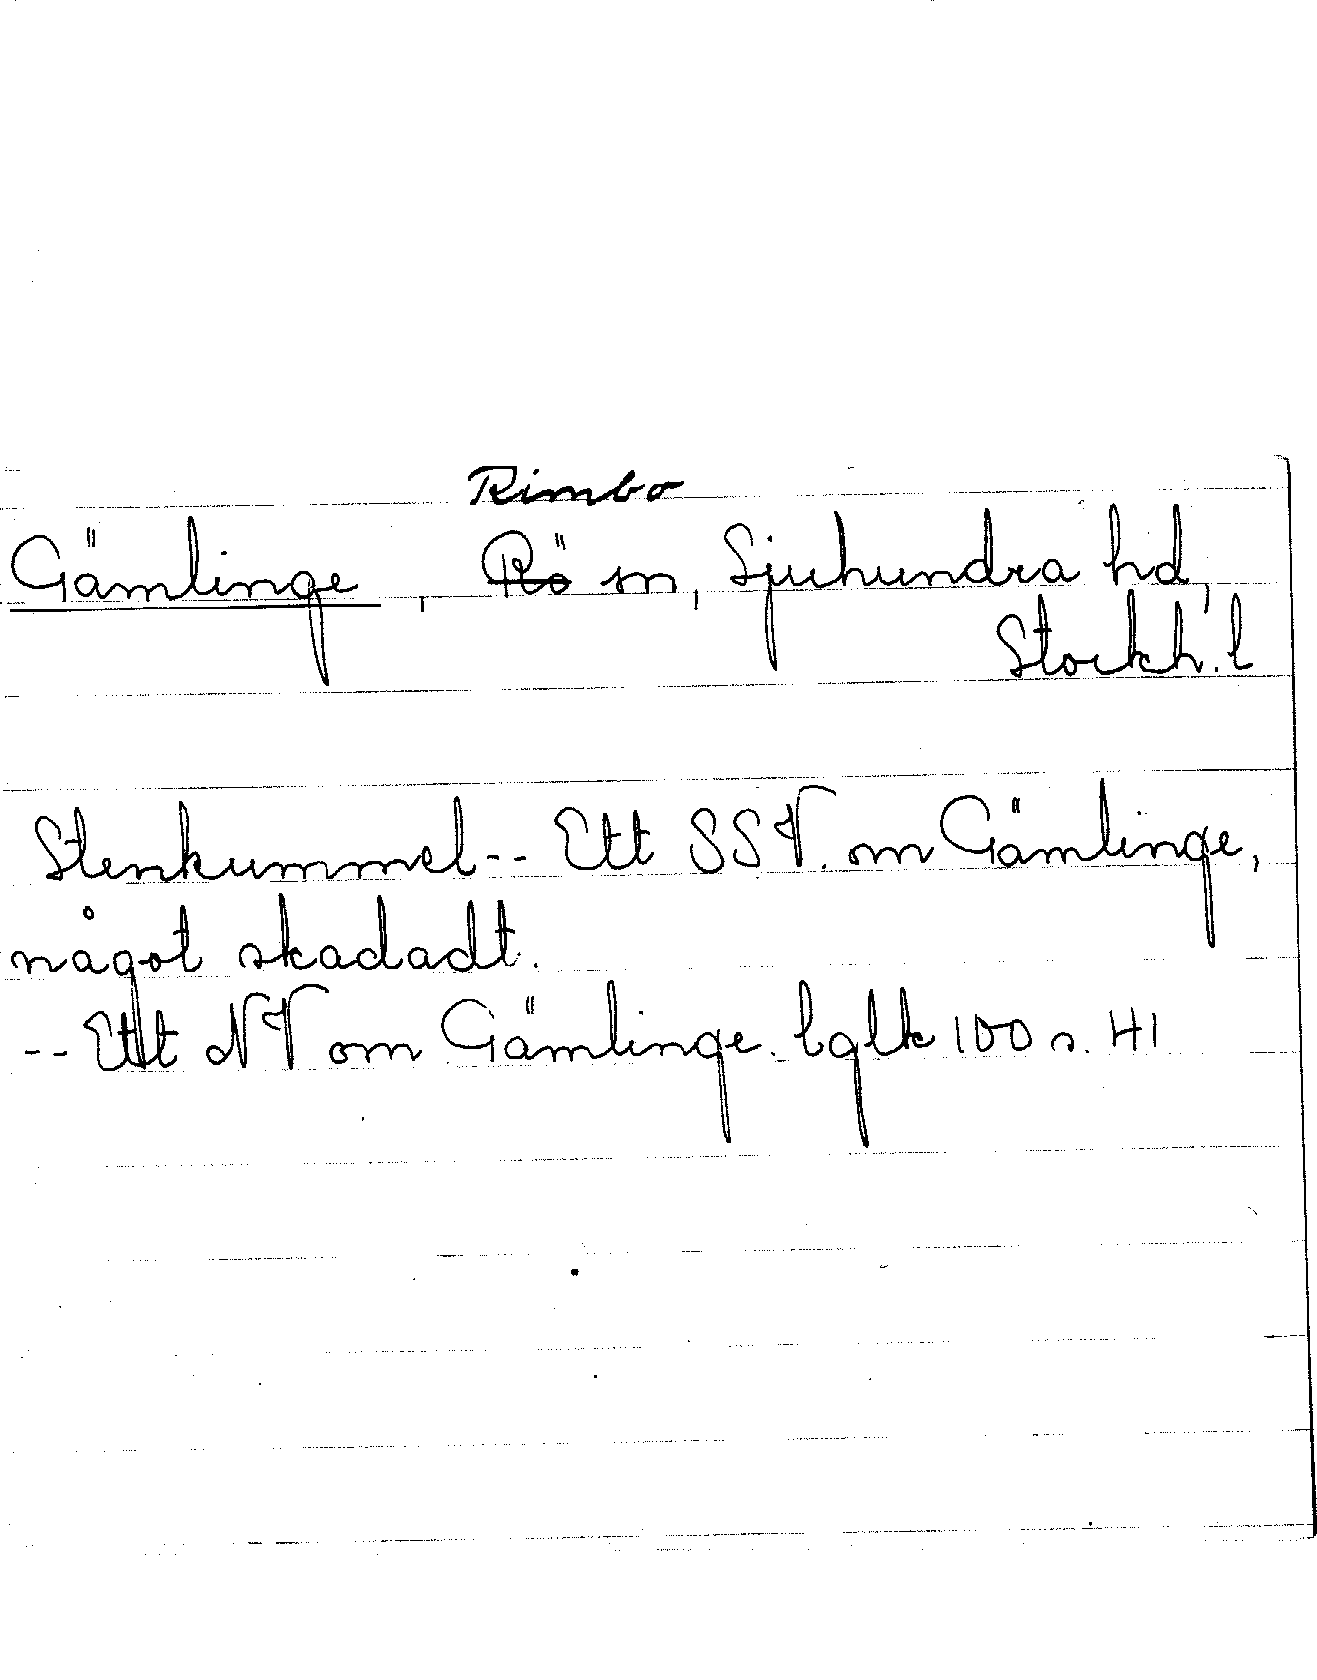 Rimbo
Gämlinge, Rö sn, Sjuhundra hd,
Stockh. l
Stenkummel -- Ett SSV. om Gämlinge,
något skadadt.
-- Ett NV om Gämlinge. bglk 100 s. 41